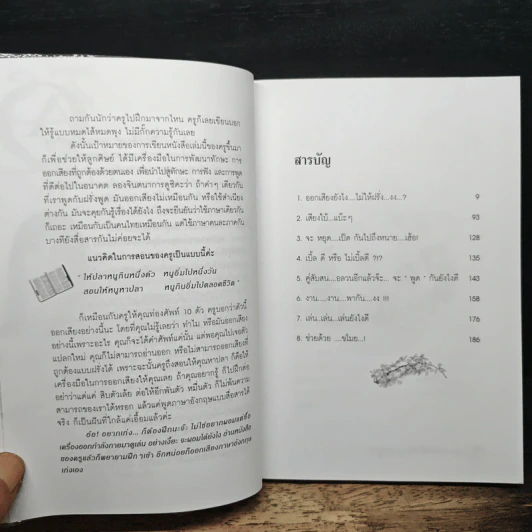 ถามกันนักว่าครูไปฝึกมาจากไหน ครูก็เลยเขียนบอก
ให้รู้แบบหมดไส้หมดพุง ไม่มีกั๊กความรู้กันเลย
ดังนั้นเป้าหมายของการเขียนหนังสือเล่มนี้ของครูขึ้นมา
ก็เพื่อช่วยให้ลูกศิษย์ ได้มีเครื่องมือในการพัฒนาทักษะ การ
ออกเสียงที่ถูกต้องด้วยตนเอง เพื่อนำไปสู่ทักษะ การฟัง และการพูด
ที่ดีต่อไปในอนาคต ลองจินตนาการดูซิคะว่า ถ้าคำๆ เดียวกัน
ที่เราพูดกับฝรั่งพูด มันออกเสียงไม่เหมือนกัน หรือใช้ตำเนียง
ต่างกัน มันจะคุยกันรู้เรื่องได้ยังไง ถึงจะยืนยันว่าใช้ภาษาเดียวกัน
ก็เถอะ เหมือนกับเป็นคนไทยเหมือนกัน แต่ใช้ภาษาคนละภาคกัน
บางทียังสื่อสารกันไม่ค่อยจะได้
แนวคิดในการสอนของครูเป็นแบบนี้ค่ะ
" ให้ปลาหนูกินหนึ่งตัว หนูอิ่มไปหนึ่งวัน
สอนให้หนูหาปลา หนูกินอิ่มไปตลอดชีวิต "
ก็เหมือนกับครูให้คุณท่องศัพท์ 10 ตัว ครูบอกว่าตัวนี้
ออกเสียงอย่างนี้นะ โดยที่คุณไม่รู้เลยว่า ทำไม หรือมันออกเสียง
อย่างนี้เพราะอะไร คุณก็จะได้คำศัพท์แค่นั้น แต่พอคุณไปเจอตัว
แปลกใหม่ คุณก็ไม่สามารถอ่านออก หรือไม่สามารถออกเสียงที่
ถูกต้องแบบฝรั่งได้ เพราะฉะนั้นครูถึงสอนให้คุณหาปลา ก็คือให้
เครื่องมือในการออกเสียงให้คุณเลย ถ้าคุณอยากรู้ ก็ไปฝึกต่อ
อย่าว่าแต่แค่ สิบตัวเลย ต่อให้อีกพันตัว หมื่นตัว ก็ไม่พ้นความ
สามารถของเราได้หรอก แล้วแค่พูดภาษาอังกฤษแบบสื่อสารได้
จริง ก็เป็นฝันที่ใกล้แค่เอื้อมแล้วค่ะ
อ้อ! อยากเก่ง... ก็ต้องฝึกนะจ๊ะ ไม่ใช่อยากผอมแต่ซื้อ
เครื่องออกกำลังกายมาดูเล่น อย่างเงี้ยะ จะผอมได้ยังไง อ่านหนังสือ
ของครูแล้วก็พยายามฝึก ๆ เข้า อีกหน่อยก็ออกเสียงภาษาอังกฤษ
เก่งเอง
สารบัญ
1. ออกเสียงยังไง....ไม่ให้ฝรั่ง....งง...? 9
2. เสียงไบ้...แบ๊ะๆ 93
3. จะ หยุด...เปิด กันไปถึงหนาย....เฮ้อ! 128
4. เบิ้ล ดี หรือ ไม่เบิ้ลดี ?!? 135
5. คู่สับสน...อลวนอีกแล้วจ๊ะ... จะ ' พูด ' กันยังไงดี 143
6. งาน.....งาน...พากัน....งง !!! 158
7. เล่น..เล่น...เล่นยังไงดี 176
8. ช่วยด้วย ....ขโมย...! 186